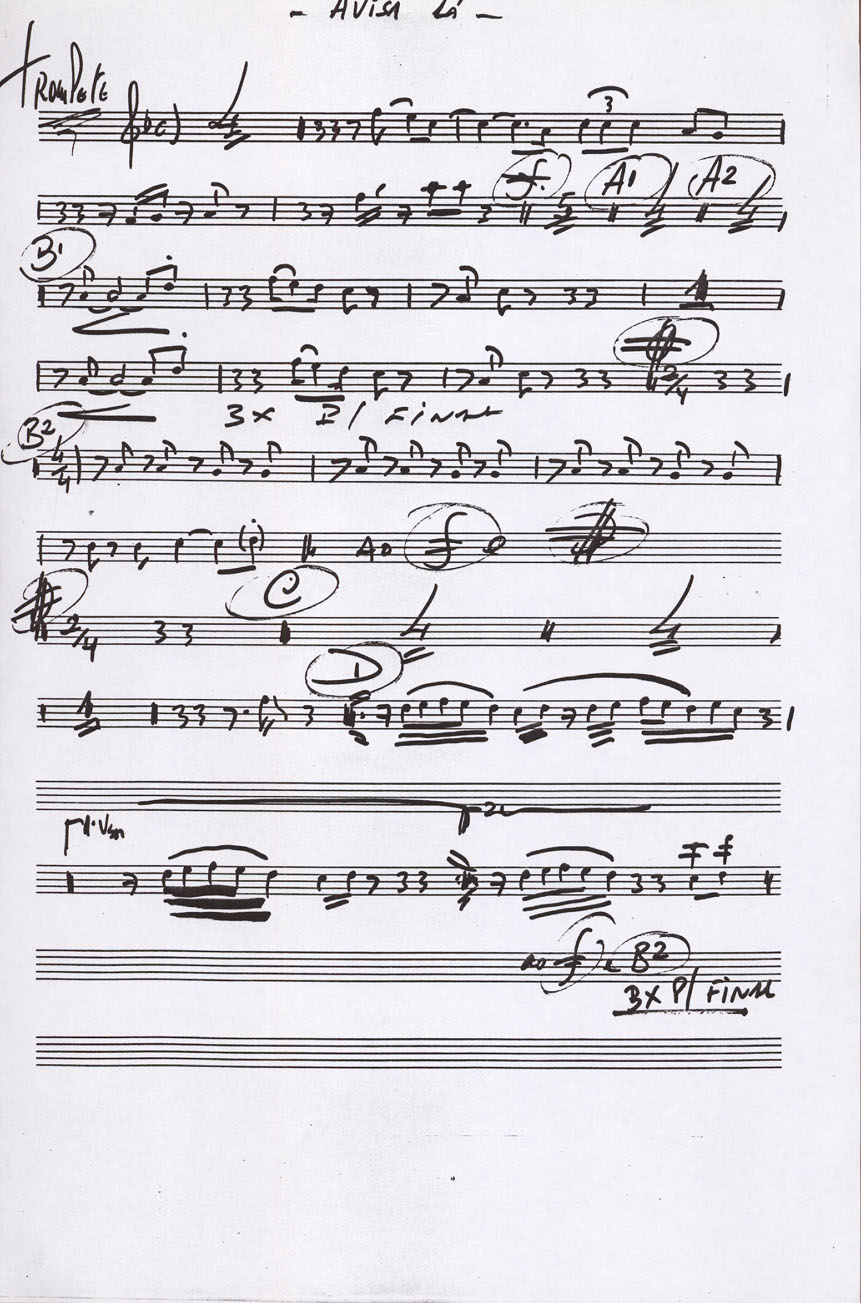 - AVISA Lá -
TROMPETE
3
A1 A2
B1
2/4
3X P/ FINAL
B2
4/4
AO e
C
2/4
D
ao e B2
3X P/ FINAL